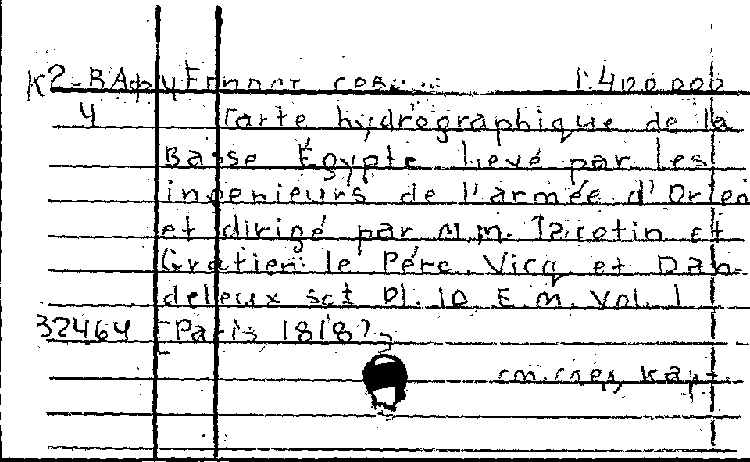 К2-ВАфр Египет север 1:400.000
4 Carte hydrographique de la
Basse Egypte levé par les
ingenieurs de l'armée d'Orien
et dirigé par M.M. Jacotin et
Gratien le Pére. Vicq et Dan-
deleux sct Pl. 10 E.M. Vol. 1
32464 [Paris 1818?]
см. след. карт.